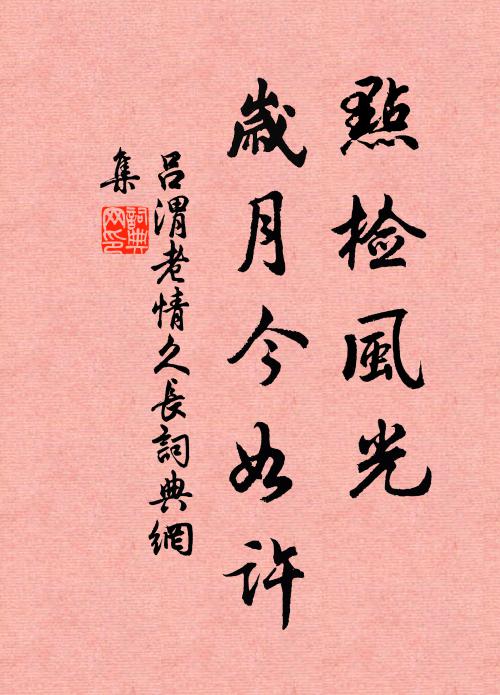 點檢風光
歲月今如許
呂渭老情久長詞典網
集
詞典
网印